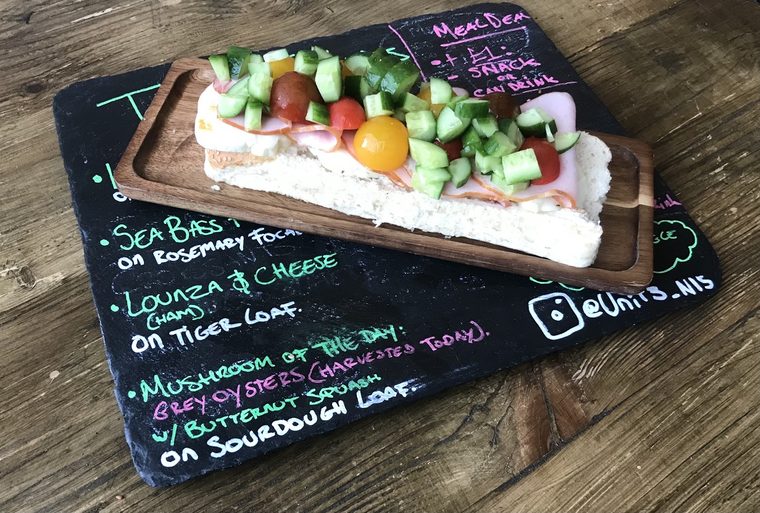 MEAL DEAL
+ £1:
- SNACK
OR
CAN DRINK
on
• SEA BASS
on ROSEMARY FOCA
• LOUNZA & CHEESE
(HAM)
on TIGER LOAF.
• MUSHROOM OF THE DAY:
GREY OYSTERS (HARVESTED TODAY).
w/ BUTTERNUT SQUASH
on SOURDOUGH LOAF.
@UNIT5_N15